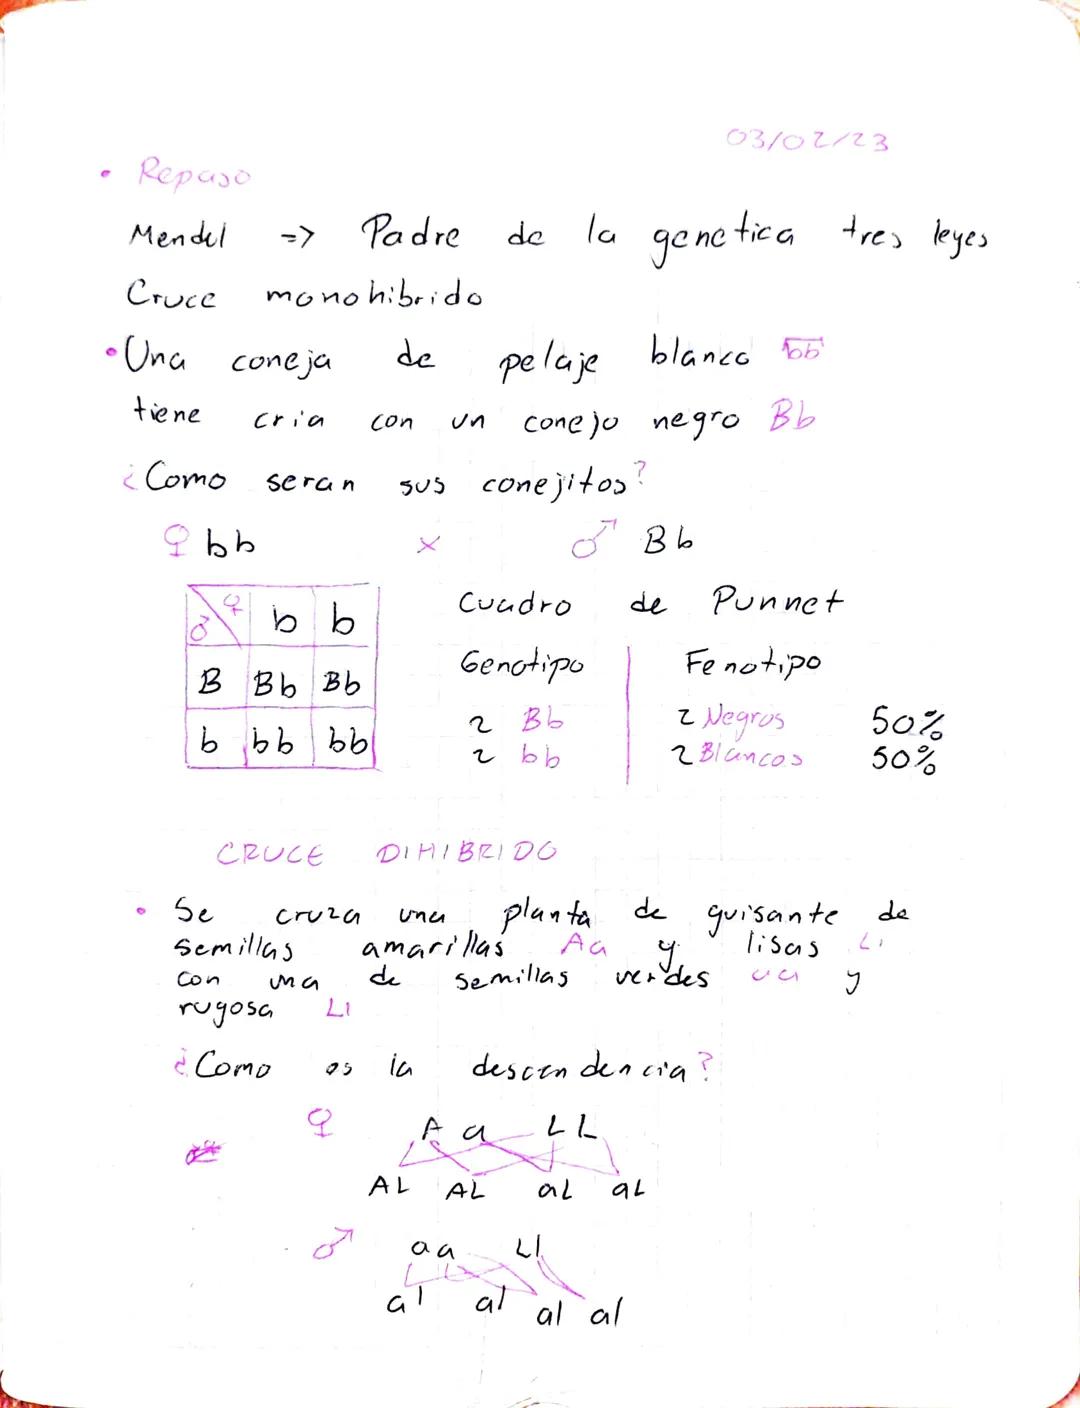 03/02/23
• Repaso
Mendel => Padre de la genetica tres leyes
Cruce monohibrido
• Una coneja de pelaje blanco bb
tiene cria con un conejo negro Bb
¿Como seran sus conejitos?
♀ bb × ♂ Bb
Cuadro de Punnet
♂ ♀ b b
B Bb Bb
b bb bb
Genotipo Fenotipo
2 Bb 2 Negros 50%
2 bb 2 Blancos 50%
CRUCE DIHIBRIDO
• Se cruza una planta de guisante de
semillas amarillas Aa y lisas
con una de semillas verdes aa y
rugosa Ll
¿Como es la descendencia?
♀ A a L L
AL AL aL aL
♂ aa Ll
al al al al